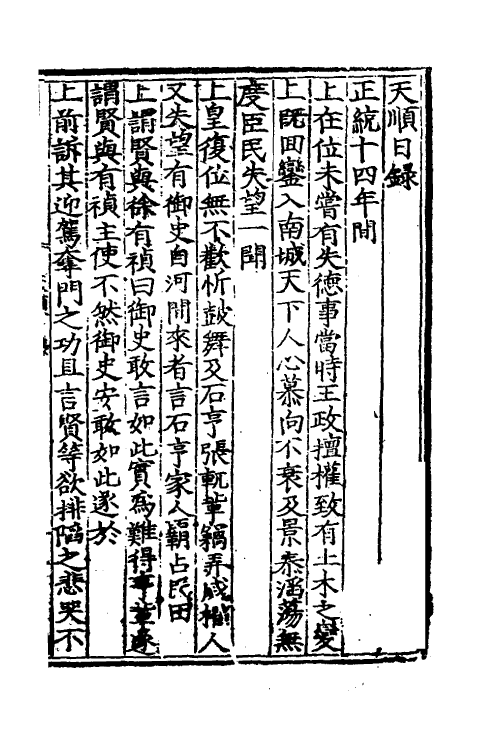 天順日錄
正統十四年間
上在位未嘗有失德事當時王政擅權致有土木之變
上既回鑾入南城天下人心慕向不衰及景泰滛蕩無
度臣民失望一聞
上皇復位無不歡忻鼓舞及石亨張軏輩竊弄威權人
又失望有御史自河間來者言石亨家人霸占民田
上謂賢與徐有禎曰御史敢言如此實爲難得亨輩遂
謂賢與有禎主使不然御史安敢如此遂於
上前訴其迎駕奪門之功且言賢等欲排陷之悲哭不